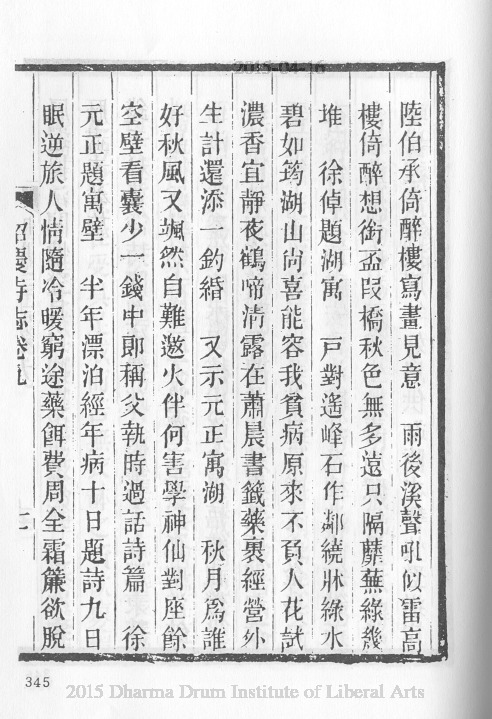 2015-04-16
陸伯承倚醉樓寫畫見意　雨後溪聲吼似雷高
樓倚醉想銜盃段橋秋色無多遠只隔蘼蕪綠幾
堆　徐倬題湖寓　戸對遙峰石作鄰繞牀綠水
碧如筠湖山尙喜能容我貧病原來不負人花試
濃香宜靜夜鶴啼淸露在蕭晨書籤藥裹經營外
生計還添一釣緡　又示元正寓湖　秋月爲誰
好秋風又颯然自難邀火伴何害學神仙對座餘
空壁看囊少一錢中郎稱父執時過話詩篇　徐
元正題寓壁　半年漂泊經年病十日題詩九日
眠逆旅人情隨冷暖窮途藥餌費周全霜簾欲脫
昭慶寺志卷九
345
2015 Dharma Drum Institute of Liberal Arts